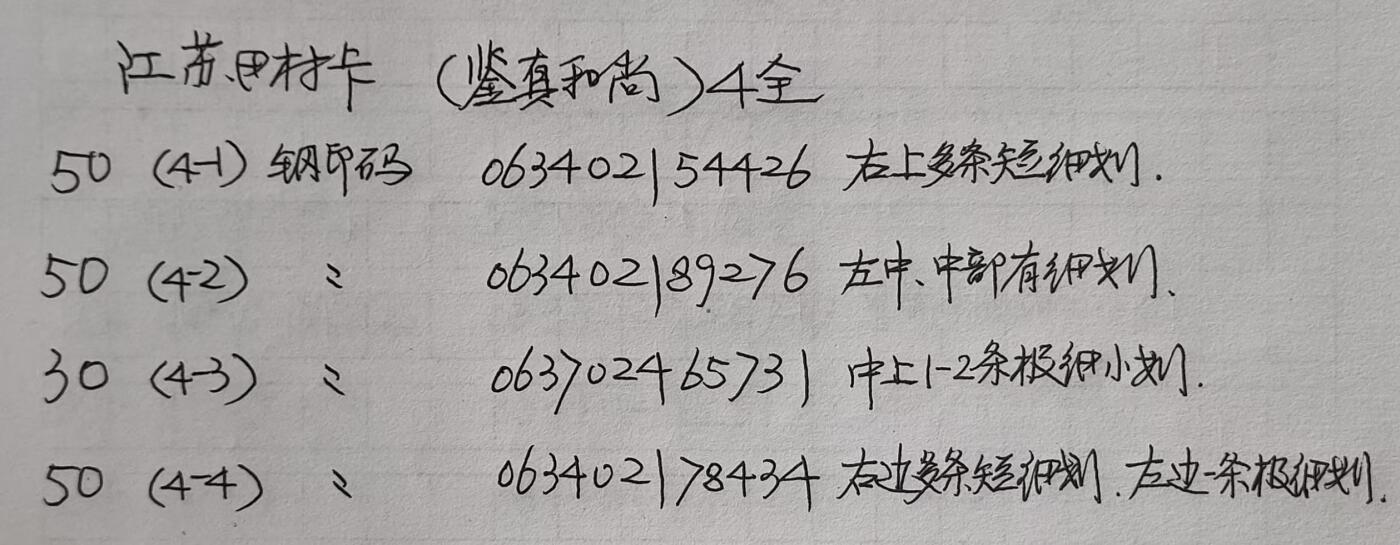 江苏田村卡 (鉴真和尚) 4全
50 (4-1) 钢印码 063402154426 右上多条短细划.
50 (4-2) 〃 063402189276 左中、中部有细划、
30 (4-3) 〃 063702465731 中上1-2条极细小划.
50 (4-4) 〃 063402178434 右边多条短细划.左边一条极细划.